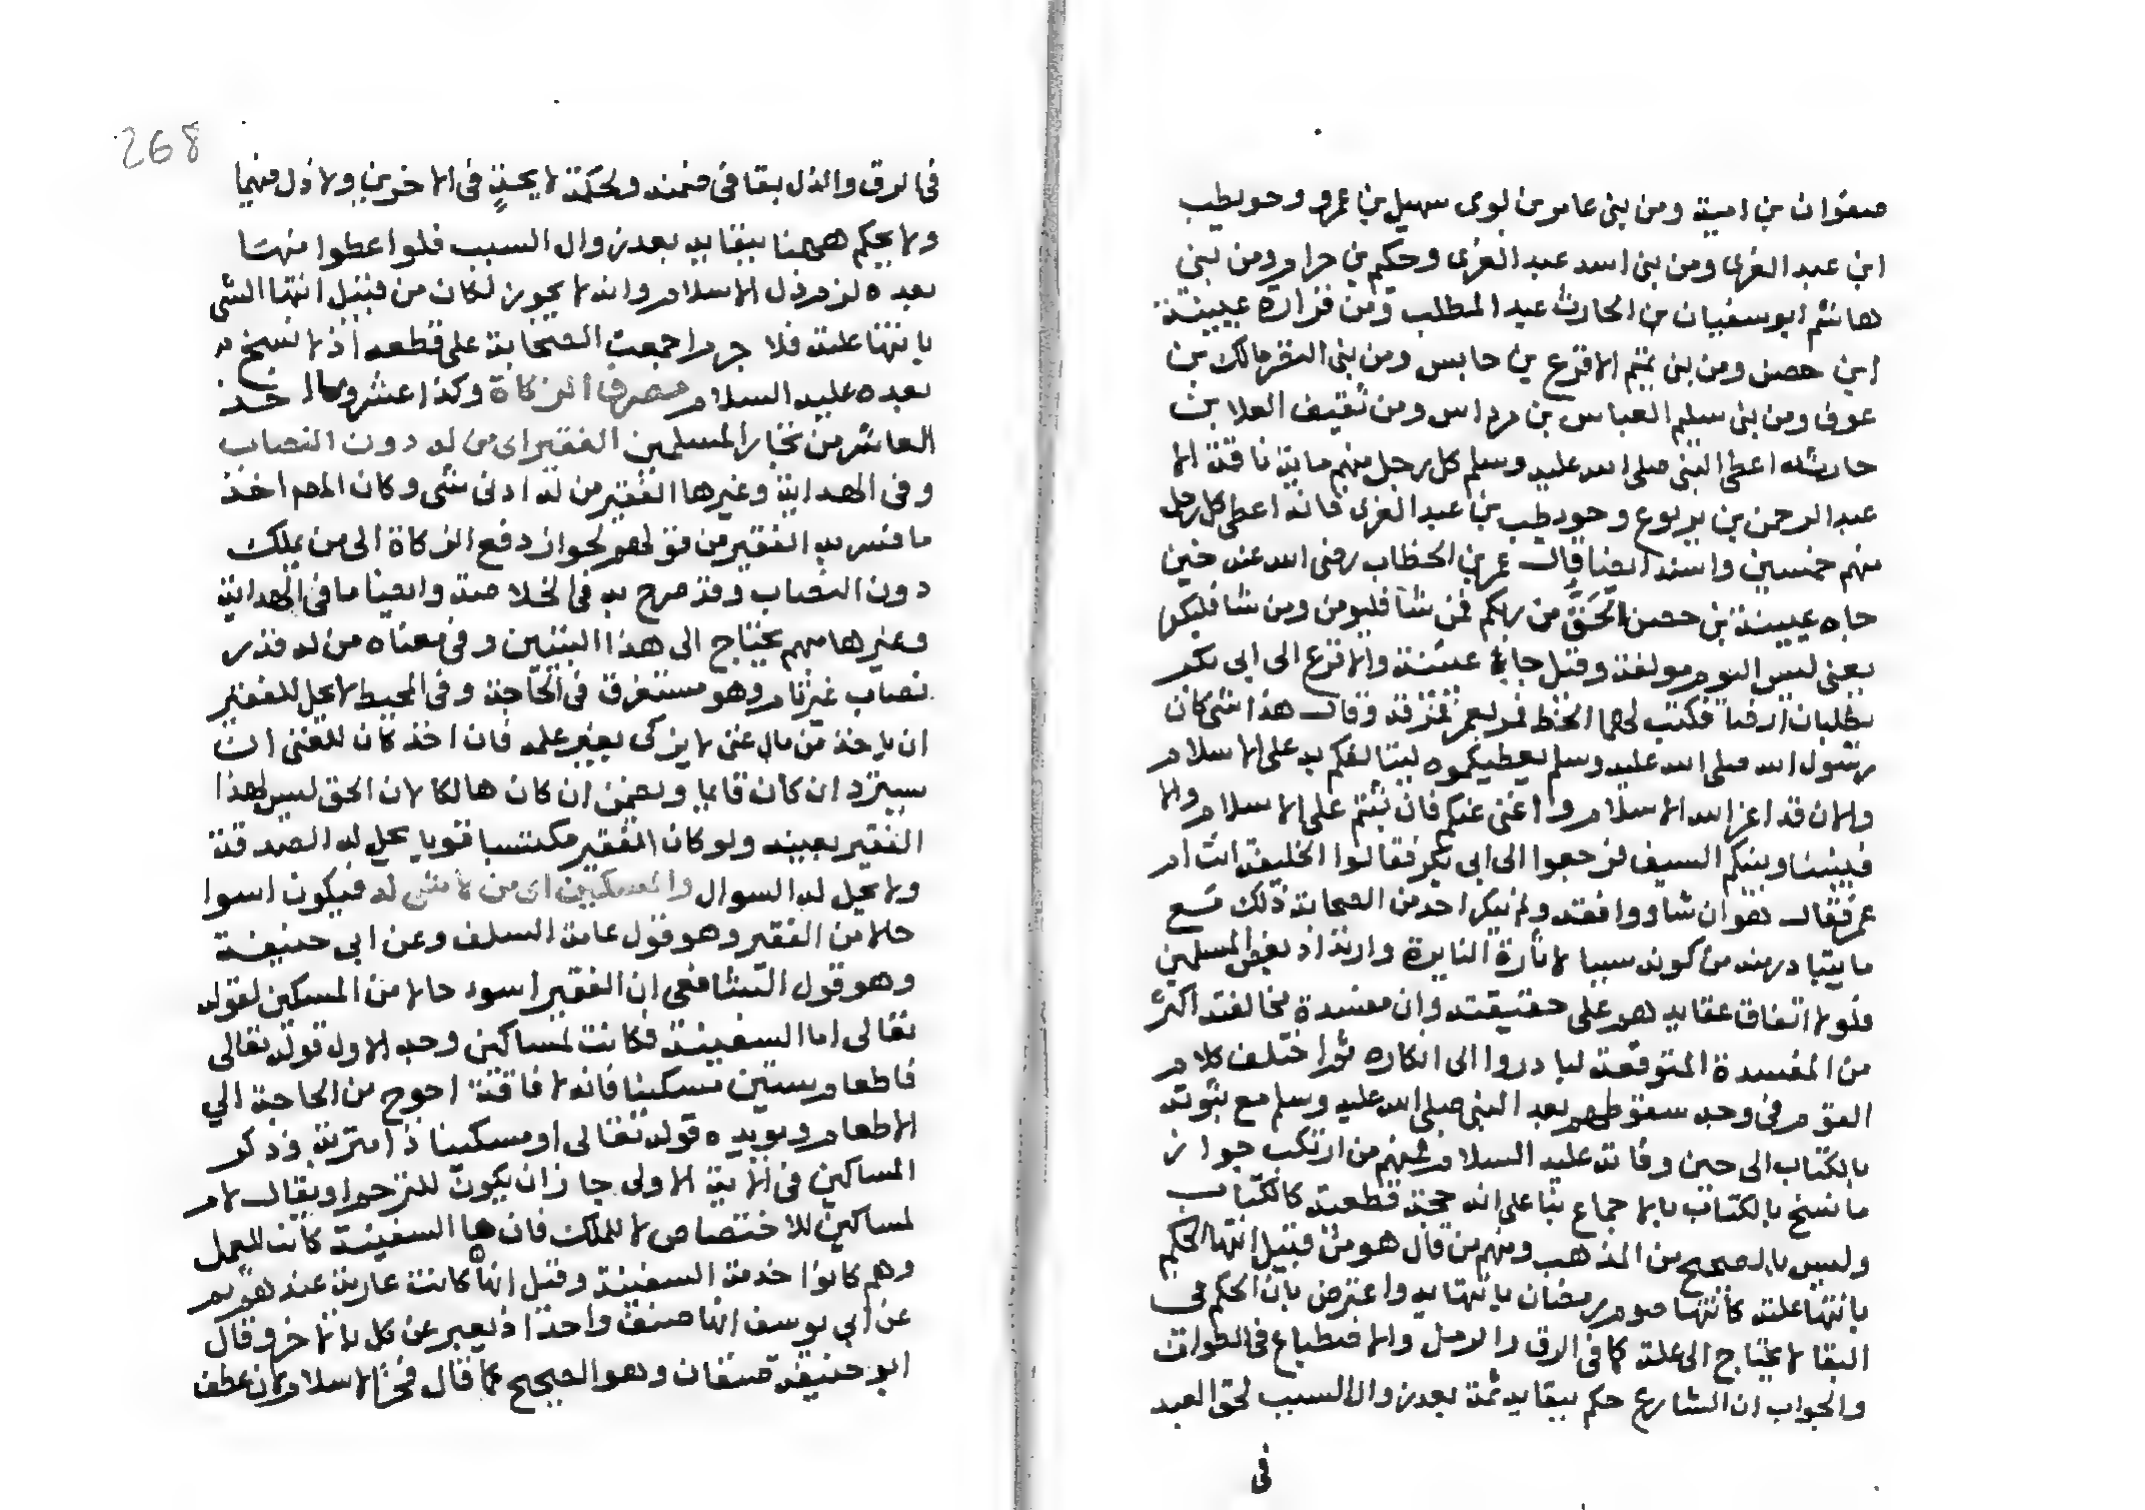 صفوان بن امية ومن بنى عامر بن لوى سهيل بن عمرو وحويطب
ابن عبد العزى ومن بنى اسد عبد العزى وحكيم بن حرام ومن لبنى
هاشم ابو سفيان بن الحارث عبد المطلب ومن فزارة عيينة
ابن حصن ومن بنى تميم الاقرع بن حابس ومن بنى النضر مالك بن
عوف ومن بنى سليم العباس بن مرداس ومن ثقيف العلا بن
حارثه اعطى النبى صلى الله عليه وسلم كل رجل منهم ماية ناقة الا
عبد الرحمن بن يربوع وحويطب بن عبد العزى فانه اعطى كل رجل
منهم خمسين واسند ايضا قال عمر بن الخطاب رضى الله عنه حين
جاه عيينة بن حصن الحق من ربكم فمن شا فليومن ومن شا فليكفر
يعنى ليس اليوم مولفة وقيل جا عيينة والاقرع الى ابى بكر
يطلبان ارضا فكتب لهما الخط فمر بعمر فمزقه وقال هذا شى كان
رسول الله صلى الله عليه وسلم يعطيكموه ليتالفكم به على الاسلام
والان قد اعز الله الاسلام واغنى عنكم فان ثبتم على الاسلام والا
فبيننا وبينكم السيف فرجعوا الى ابى بكر فقالوا الخليفة انت ام
عمر فقال هو ان شا ووافقه ولم ينكر احد من الصحابة ذلك مع
ما يتبادر منه من كونه سببا لاثارة النايرة وارتداد بعض المسلمين
فلولا اتفاق عقايدهم على حقيقته وان مفسدة مخالفته اكثر
من المفسدة المتوقعة لبادروا الى انكاره ثم اختلف كلام
القوم فى وجه سقوطهم بعد النبى صلى الله عليه وسلم مع ثبوته
بالكتاب الى حين وفاته عليه السلام فمنهم من ارتكب جواز
ما نسخ بالكتاب بالاجماع بنا على انه حجة قطعية كالكتاب
وليس بالصحيح من المذهب ومنهم من قال هو من قبيل انتها الحكم
بانتها علته كانتها صوم رمضان بانتهايه واعترض بان الحكم فى
البقا لا يحتاج الى علة كما فى الرق والرمل والاضطباع فى الطواف
والجواب ان الشارع حكم ببقايه ثمة بعد زوال السبب لحق العبد
فى
فى الرق والذل بقا فى ضمنه ولحكمة لا يجد فى الاخرين ولا ذل فيهما
ولا يحكم ههنا ببقايه بعد زوال السبب فلو اعطوا منها
بعده لزم ذل الاسلام وانه لا يجوز لكان من قبيل انتها الشى
بانتها علته فلا جرم اجمعت الصحابة على قطعه اذ لا نسخ
بعده عليه السلام مصرف الزكاة وكذا عشر وما اخذ
العاشر من تجار المسلمين الفقير اى من له دون النصاب
وفى الهداية وغيرها الفقير من له ادنى شى وكان المص اخذ
ما فسر به الفقير من قولهم لجواز دفع الزكاة الى من يملك
دون النصاب وقد صرح به فى الخلاصة وايضا ما فى الهداية
وغيرها مبهم يحتاج الى هذا التبيين وفى معناه من له قدر
نصاب غير نام وهو مستغرق فى الحاجة وفى المحيط لا يحل للفقير
ان ياخذ من مال غنى لا يزكى بغير علمه فان اخذ كان للغنى ان
يسترد ان كان قايما ويضمن ان كان هالكا لان الحق ليس لهذا
الفقير بعينه ولو كان الفقير مكتسبا قويا يحل له الصدقة
ولا يحل له السوال والمسكين اى من لا شى له فيكون اسوا
حالا من الفقير وهو قول عامة السلف وعن ابى حنيفة
وهو قول الشافعى ان الفقير اسود حالا من المسكين لقوله
تعالى اما السفينة فكانت لمساكين وجه الاول قوله تعالى
فاطعام ستين مسكينا فانه لا فاقة احوج من الحاجة الي
الاطعام ويويده قوله تعالى او مسكينا ذا متربة وذكر
المساكين فى الاية الاولى جاز ان يكون للترحم او يقال لام
لمساكين للاختصاص لا للملك فان السفينة كانت للعمل
وهم كانوا خدمة السفينة وقيل انها كانت عارية عندهم ثم
عن ابي يوسف انها صنف واحد اذ يعبر عن كل بالاخر وقال
ابو حنيفة صنفان وهو الصحيح كما قال فخر الاسلام لان عطف
268